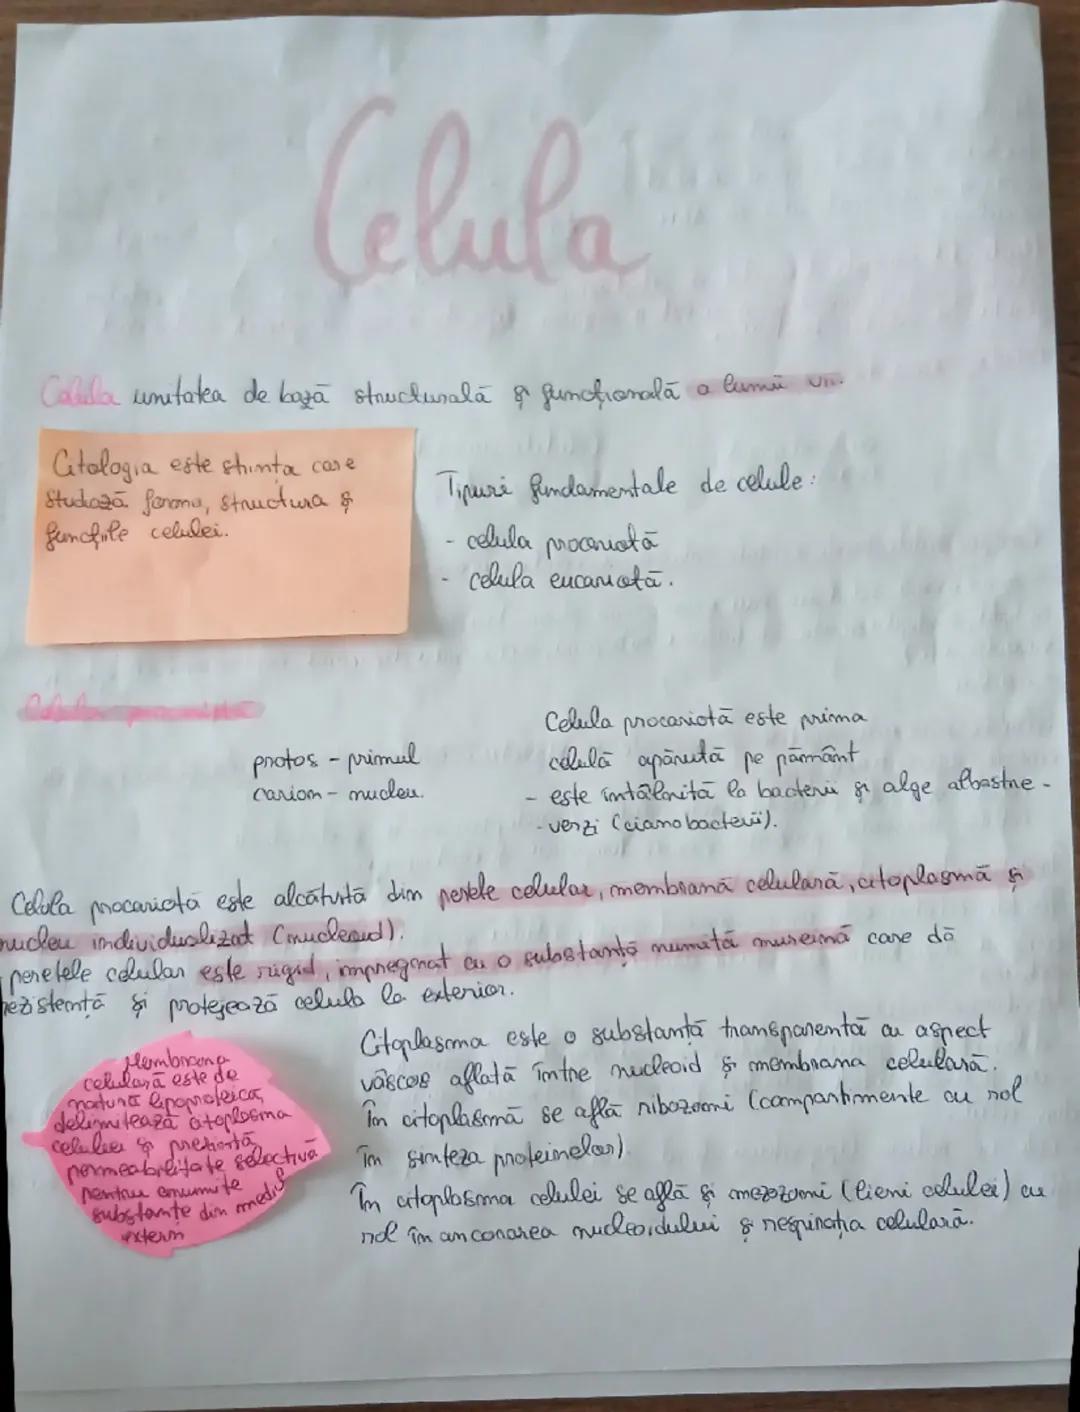 Celula
Celula unitatea de bază structurală și funcțională a lumii vii.
Citologia este stiința care
studiază forma, structura și
funcțiile celulei.
Tipuri fundamentale de celule:
- celula procariotă
- celula eucariotă.
Celula procariotă
protos - primul
carion - nucleu.
Celula procariotă este prima
celulă apărută pe pământ
- este întâlnită la bacterii și alge albastre -
- verzi (cianobacterii).
Celula procariotă este alcătuită din perete celular, membrană celulară, citoplasmă și
nucleu individualizat (nucleoid).
peretele celular este rigid, impregnat cu o substanță numită mureină care dă
rezistență și protejează celula la exterior.
Membrana
celulară este de
natură lipoproteică,
delimitează citoplasma
celulei și prezintă
permeabilitate selectivă
pentru anumite
substanțe din mediu
extern
Citoplasma este o substanță transparentă cu aspect
vâscos aflată între nucleoid și membrana celulară.
În citoplasmă se află ribozomi (compartimente cu rol
în sinteza proteinelor).
În citoplasma celulei se află și mezozomi (lieni celulei) cu
rol în ancorarea nucleoidului și respirația celulară.